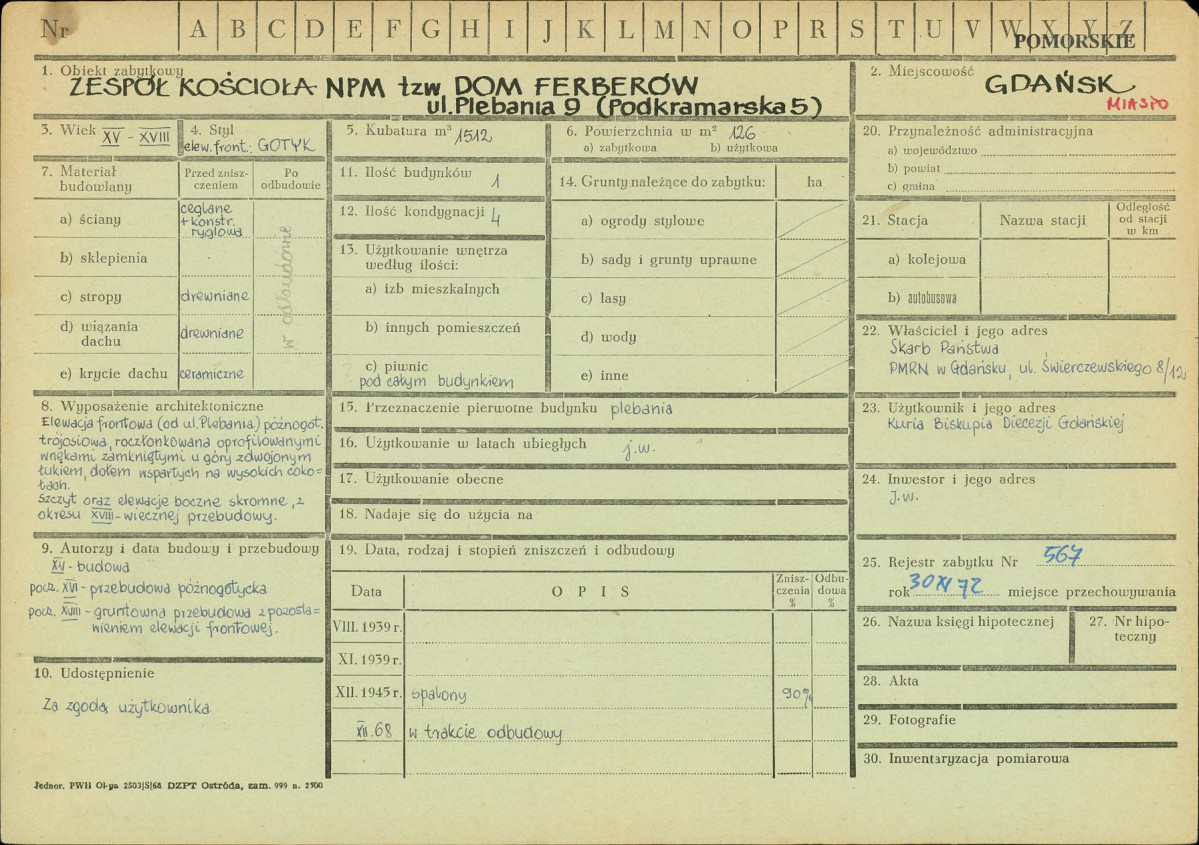 Nr A B C D E F G H I J K L M N O P R S T U V W X Y Z
POMORSKIE
1. Obiekt zabytkowy
ZESPÓŁ KOŚCIOŁA NPM tzw DOM FERBERÓW
ul. Plebania 9 (Podkramarska 5)
2. Miejscowość
GDAŃSK
MIASTO
3. Wiek XV - XVIII
4. Styl
elew. front.: GOTYK
5. Kubatura m³ 1512
6. Powierzchnia w m² 126
a) zabytkowa b) użytkowa
7. Materiał budowlany
Przed zniszczeniem
Po odbudowie
a) ściany
ceglane
+ konstr.
ryglowa
b) sklepienia -
c) stropy drewniane
d) wiązania dachu drewniane
e) krycie dachu ceramiczne
w odbudowie
8. Wyposażenie architektoniczne
Elewacja frontowa (od ul. Plebania) późnogot.
trójosiowa, rozczłonkowana oprofilowanymi
wnękami zamkniętymi u góry zdwojonym
łukiem, dołem wspartych na wysokich coko=
łach.
Szczyt oraz elewacje boczne skromne, z
okresu XVIII-wiecznej przebudowy.
9. Autorzy i data budowy i przebudowy
XV - budowa
pocz. XVI - przebudowa późnogotycka
pocz. XVIII - gruntowna przebudowa z pozosta=
wieniem elewacji frontowej.
10. Udostępnienie
Za zgodą użytkownika
Jednor. PWH Ol-ga 2503|S|68 DZPT Ostróda, zam. 999 n. 2500
11. Ilość budynków 1
12. Ilość kondygnacji 4
13. Użytkowanie wnętrza
według ilości:
a) izb mieszkalnych
b) innych pomieszczeń
c) piwnic
pod całym budynkiem
14. Grunty należące do zabytku: ha
a) ogrody stylowe
b) sady i grunty uprawne
c) lasy
d) wody
e) inne
15. Przeznaczenie pierwotne budynku plebania
16. Użytkowanie w latach ubiegłych j.w.
17. Użytkowanie obecne
18. Nadaje się do użycia na
19. Data, rodzaj i stopień zniszczeń i odbudowy
Data OPIS Zniszczenia % Odbudowa %
VIII. 1939 r.
XI. 1939 r.
XII. 1945 r. spalony 90%
XII.68 w trakcie odbudowy
20. Przynależność administracyjna
a) województwo
b) powiat
c) gmina
21. Stacja Nazwa stacji Odległość od stacji w km
a) kolejowa
b) autobusowa
22. Właściciel i jego adres
Skarb Państwa
PMRN w Gdańsku, ul. Świerczewskiego 8/12
23. Użytkownik i jego adres
Kuria Biskupia Diecezji Gdańskiej
24. Inwestor i jego adres
J.w.
25. Rejestr zabytku Nr 567
rok 30 XI 72 miejsce przechowywania
26. Nazwa księgi hipotecznej
27. Nr hipoteczny
28. Akta
29. Fotografie
30. Inwentaryzacja pomiarowa